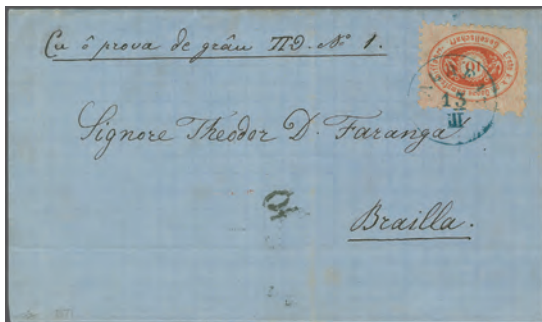 Cu ô prova de grâu ΠD. Nº 1.
Signore Theodor D. Faranga
Brailla.
10
13
III